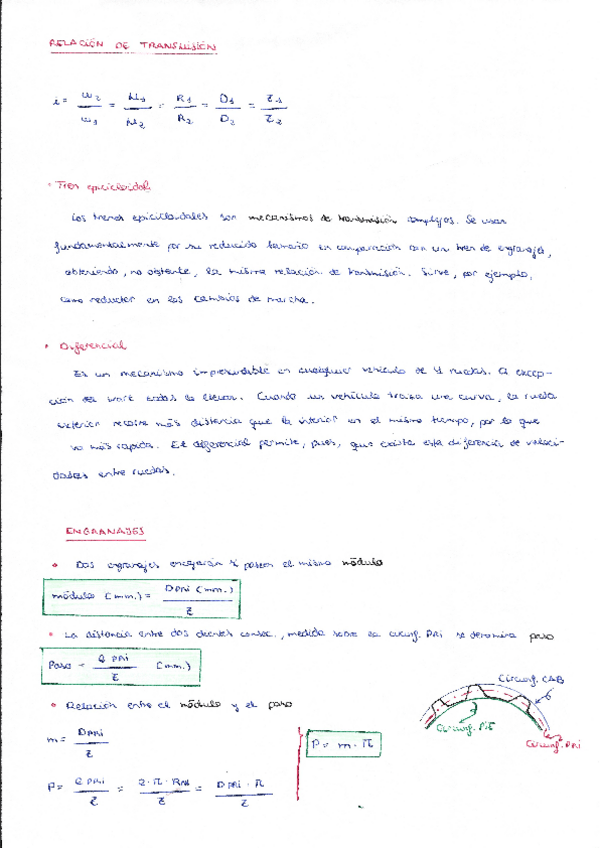 RELACIÓN DE TRANSMISIÓN
i = ω2/ω1 = M1/M2 = R1/R2 = D1/D2 = Z1/Z2
• Tren epicicloidal
Los trenes epicicloidales son mecanismos de transmisión complejos. Se usan
fundamentalmente por su reducido tamaño en comparación con un tren de engranajes,
obteniendo, no obstante, la misma relación de transmisión. Sirve, por ejemplo,
como reductor en los cambios de marcha.
• Diferencial
Es un mecanismo imprescindible en cualquier vehículo de 4 ruedas. A excep-
ción del kart todos lo llevan. Cuando un vehículo traza una curva, la rueda
exterior recorre más distancia que la interior en el mismo tiempo, por lo que
va más rápida. El diferencial permite, pues, que exista esta diferencia de veloci-
dades entre ruedas.
ENGRANAJES
• Dos engranajes encajarán si poseen el mismo módulo
módulo (mm.) = DPRi (mm.)/Z
• La distancia entre dos dientes consec., medida sobre la circunf. PRi se denomina paso
Paso = ℓ PRi/Z (mm.)
Circunf. CAB
• Relación entre el módulo y el paso
Circunf. PIE
m = DPRi/Z
P = m · π
Circunf. PRi
P = ℓ PRi/Z = 2·π·RPRi/Z = DPRi · π/Z